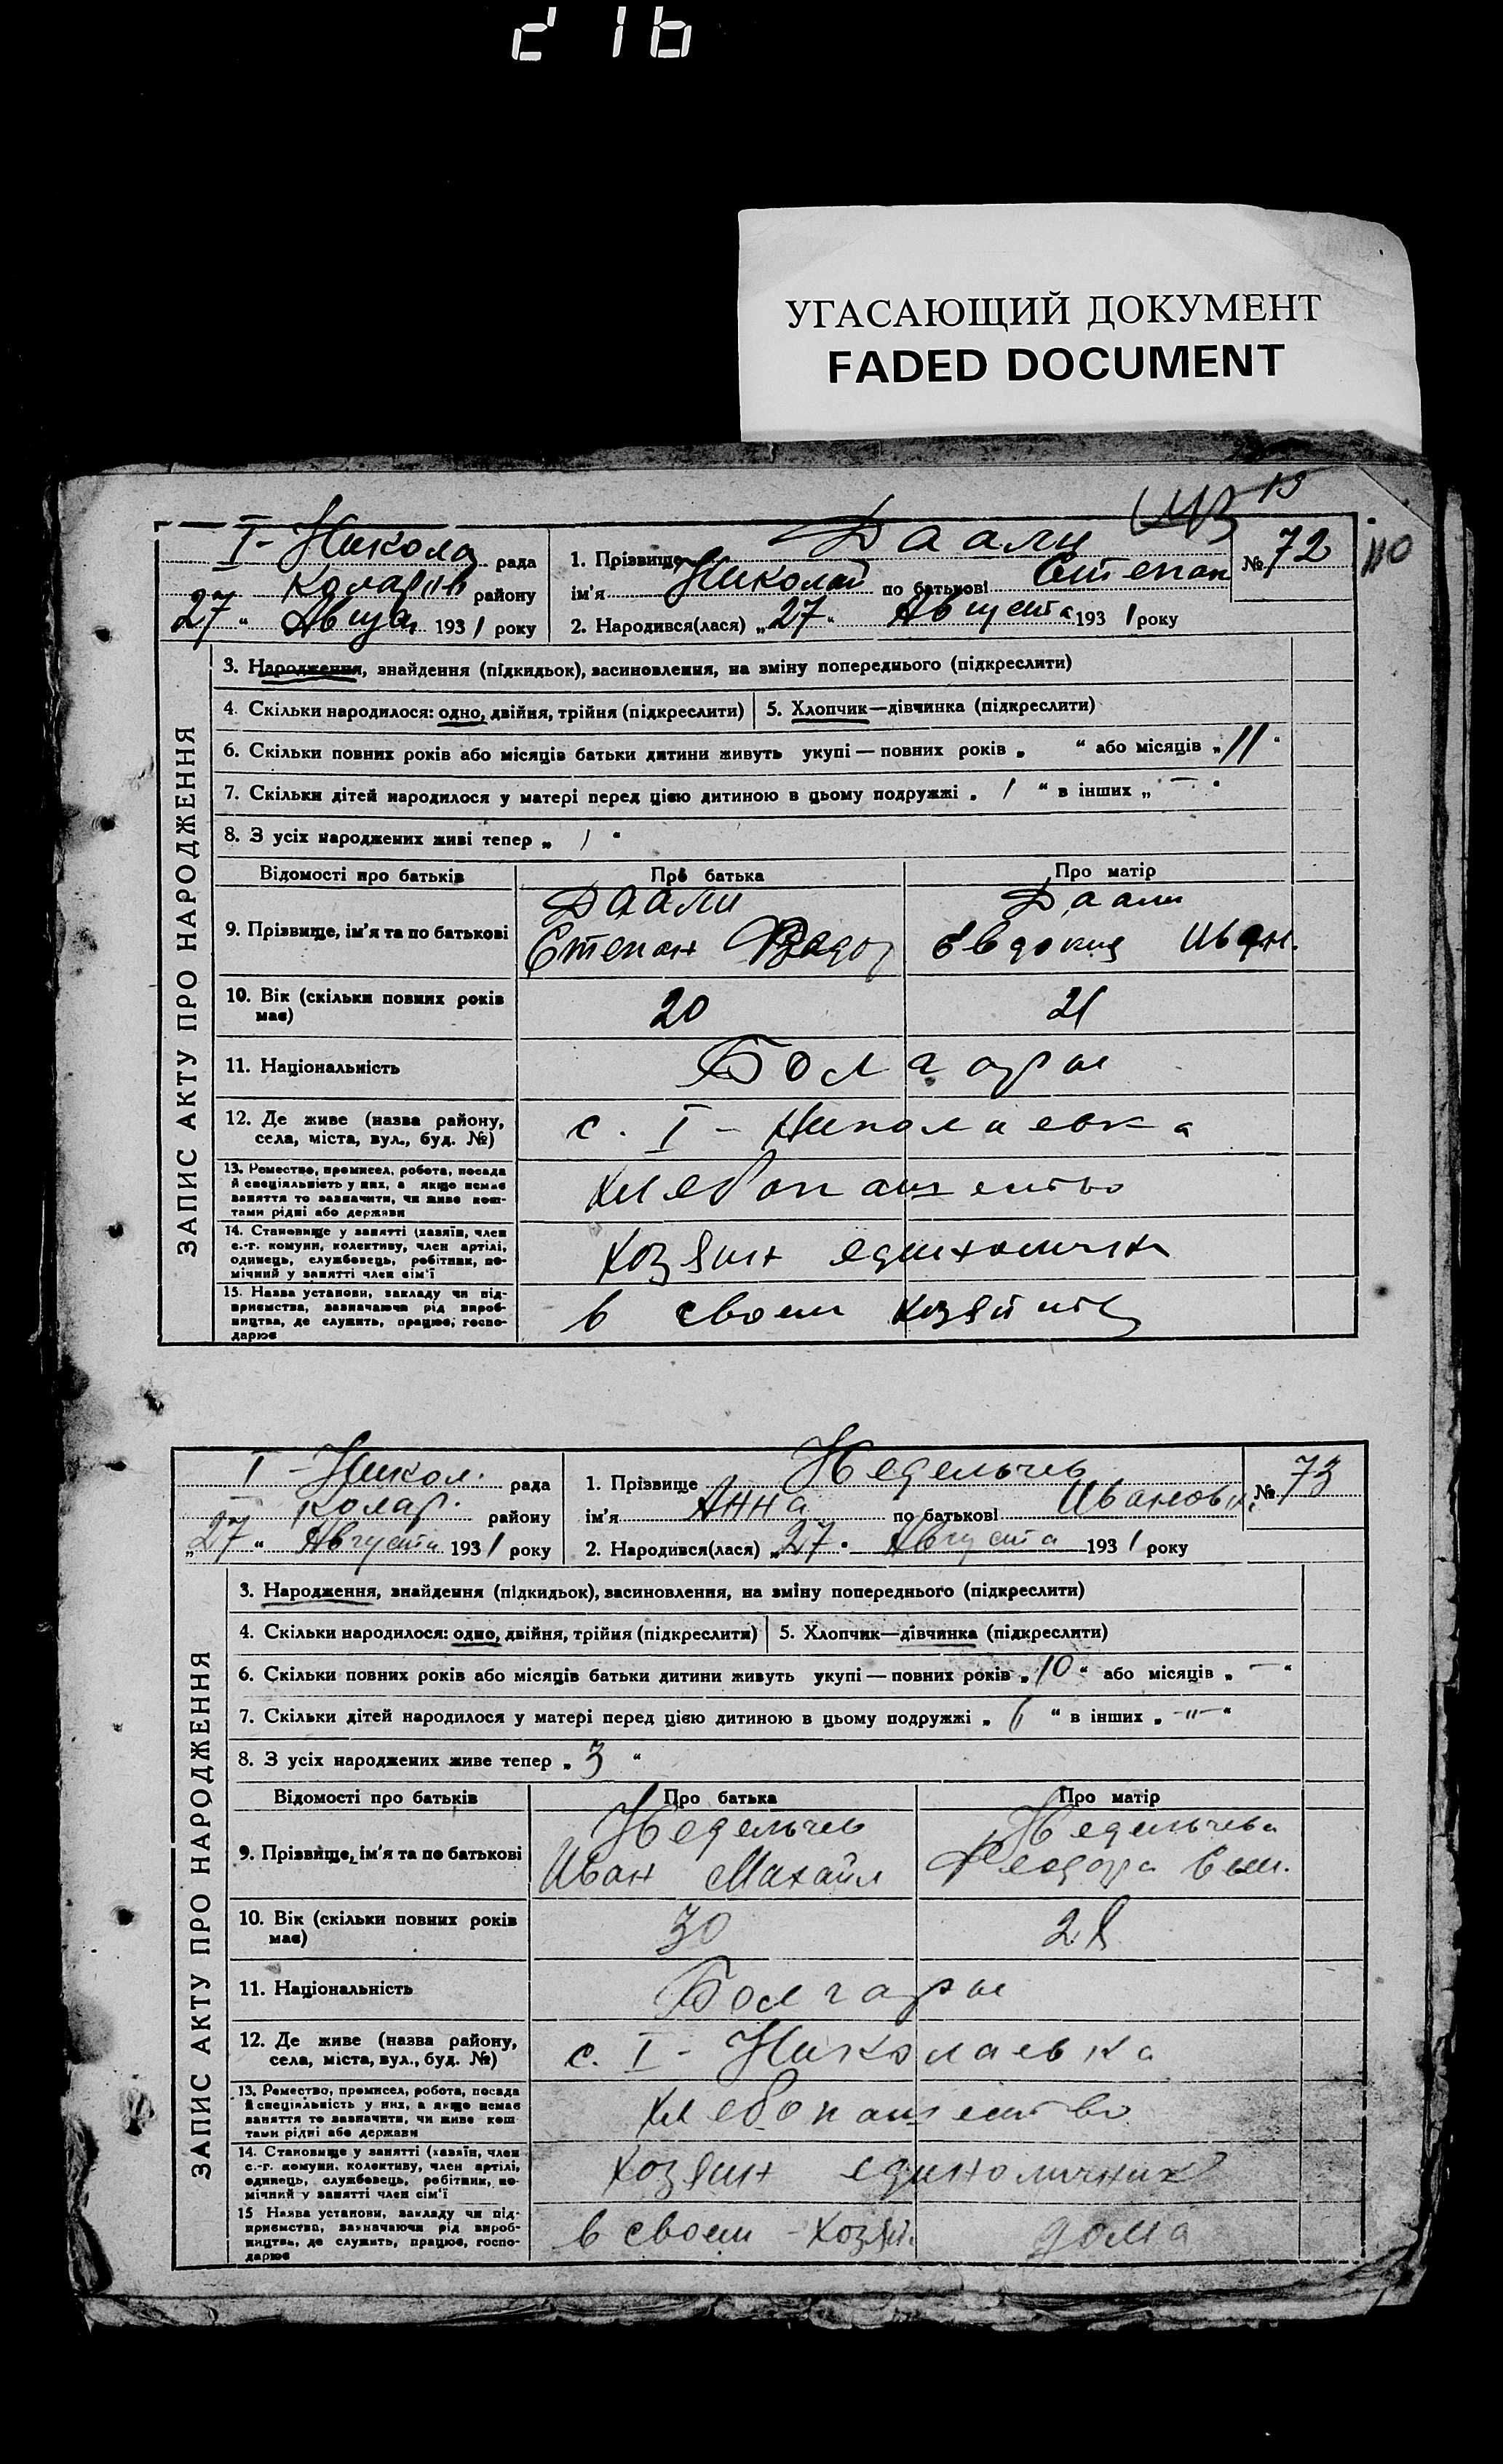 216
УГАСАЮЩИЙ ДОКУМЕНТ
FADED DOCUMENT
19
110
I - Никола рада
Коларів району
27 " Август 1931 року
1. Прізвище Даали
ім'я Николай по батькові Степан
2. Народився(лася) „27" Августа 1931 року
№ 72
ЗАПИС АКТУ ПРО НАРОДЖЕННЯ
3. Народження, знайдення (підкидьок), засиновлення, на зміну попереднього (підкреслити)
4. Скільки народилося: одно, двійня, трійня (підкреслити) 5. Хлопчик—дівчинка (підкреслити)
6. Скільки повних років або місяців батьки дитини живуть укупі — повних років „ " або місяців „11"
7. Скільки дітей народилося у матері перед цією дитиною в цьому подружжі „ 1 " в інших „ — "
8. З усіх народжених живі тепер „ 1 "
Відомості про батьків Про батька Про матір
9. Прізвище, ім'я та по батькові
Даали Даали
Степан Евдокия Иван.
10. Вік (скільки повних років має) 20 21
11. Національність Болгары
12. Де живе (назва району, села, міста, вул., буд. №) с. I - Николаевка
13. Ремество, промисел, робота, посада
й спеціяльність у них, а якщо немає
заняття то зазначити, чи живе кош-
тами рідні або держави
Хлебопашество
14. Становище у занятті (хазяїн, член
с.-г. комуни, колективу, член артілі,
одинець, службовець, робітник, по-
мічний у занятті член сім'ї
хозяин единолични
15. Назва установи, закладу чи під-
приємства, зазначаючи рід вироб-
ництва, де служить, працює, госпо-
дарює
в своем хозяйств
I - Никол. рада
Колар. району
„27 " Августа 1931 року
1. Прізвище Недельчев
ім'я Анна по батькові Ивановн.
2. Народився(лася) „27" Августа 1931 року
№ 73
ЗАПИС АКТУ ПРО НАРОДЖЕННЯ
3. Народження, знайдення (підкидьок), засиновлення, на зміну попереднього (підкреслити)
4. Скільки народилося: одно, двійня, трійня (підкреслити) 5. Хлопчик—дівчинка (підкреслити)
6. Скільки повних років або місяців батьки дитини живуть укупі — повних років „10" або місяців „ — "
7. Скільки дітей народилося у матері перед цією дитиною в цьому подружжі „ 6 " в інших „ -"- "
8. З усіх народжених живе тепер „ 3 "
Відомості про батьків Про батька Про матір
9. Прізвище, ім'я та по батькові
Недельчев Недельчева
Иван Михайл Феодора
10. Вік (скільки повних років має) 30 28
11. Національність Болгары
12. Де живе (назва району, села, міста, вул., буд. №) с. I - Николаевка
13. Ремество, промисел, робота, посада
й спеціяльність у них, а якщо немає
заняття то зазначити, чи живе кош-
тами рідні або держави
Хлебопашество
14. Становище у занятті (хазяїн, член
с.-г. комуни, колективу, член артілі,
одинець, службовець, робітник, по-
мічний у занятті член сім'ї
хозяин единоличник
15 Назва установи, закладу чи під-
приємства, зазначаючи рід вироб-
ництва, де служить, працює, госпо-
дарює
в своем - хозяй. дома